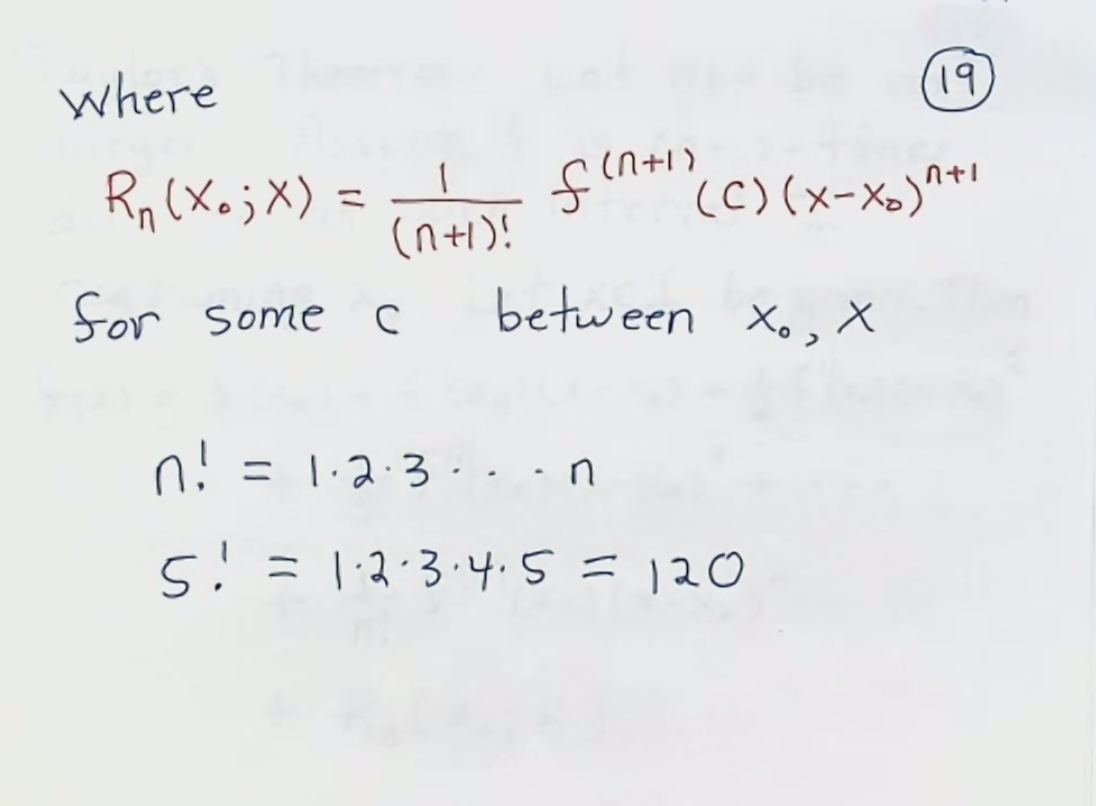 where
19
Rₙ(x₀;x) = 1/(n+1)! f⁽ⁿ⁺¹⁾(c)(x-x₀)ⁿ⁺¹
for some c between x₀, x
n! = 1·2·3···n
5! = 1·2·3·4·5 = 120